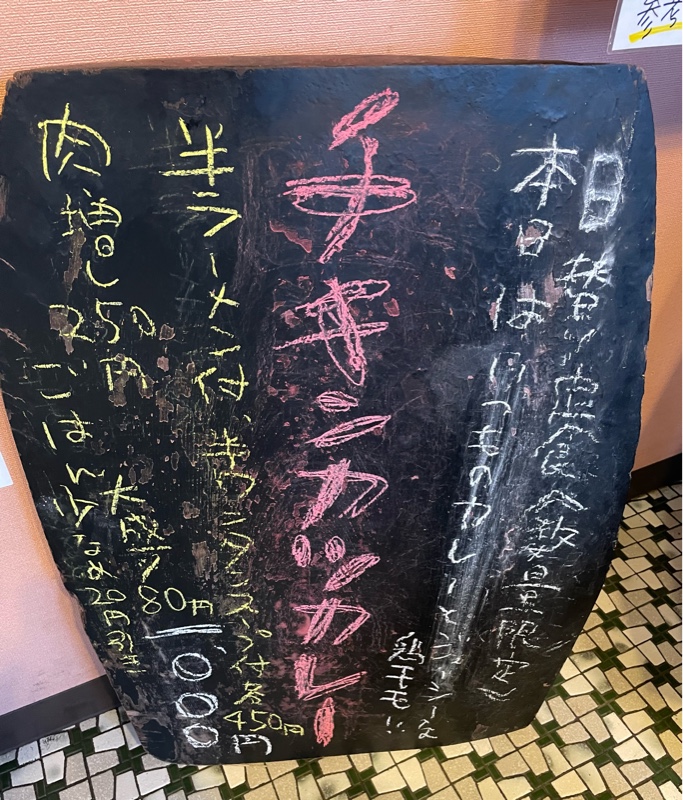 日替り定食(数量限定)
本日はいつものカレーとジューシーな
鶏モモ!!
チキンカツカレー
半ラーメン付、半ワンタンスープ付各450円
1,000円
肉増し250円
大盛り80円
ごはん少なめ20円引き
参考